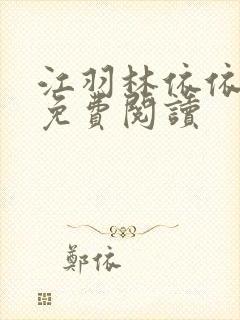 江羽林依依
免費閱讀
鄭依